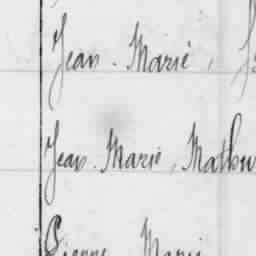 Jean. Marie,
Jean. Marie, Mathu
Pierre Marie